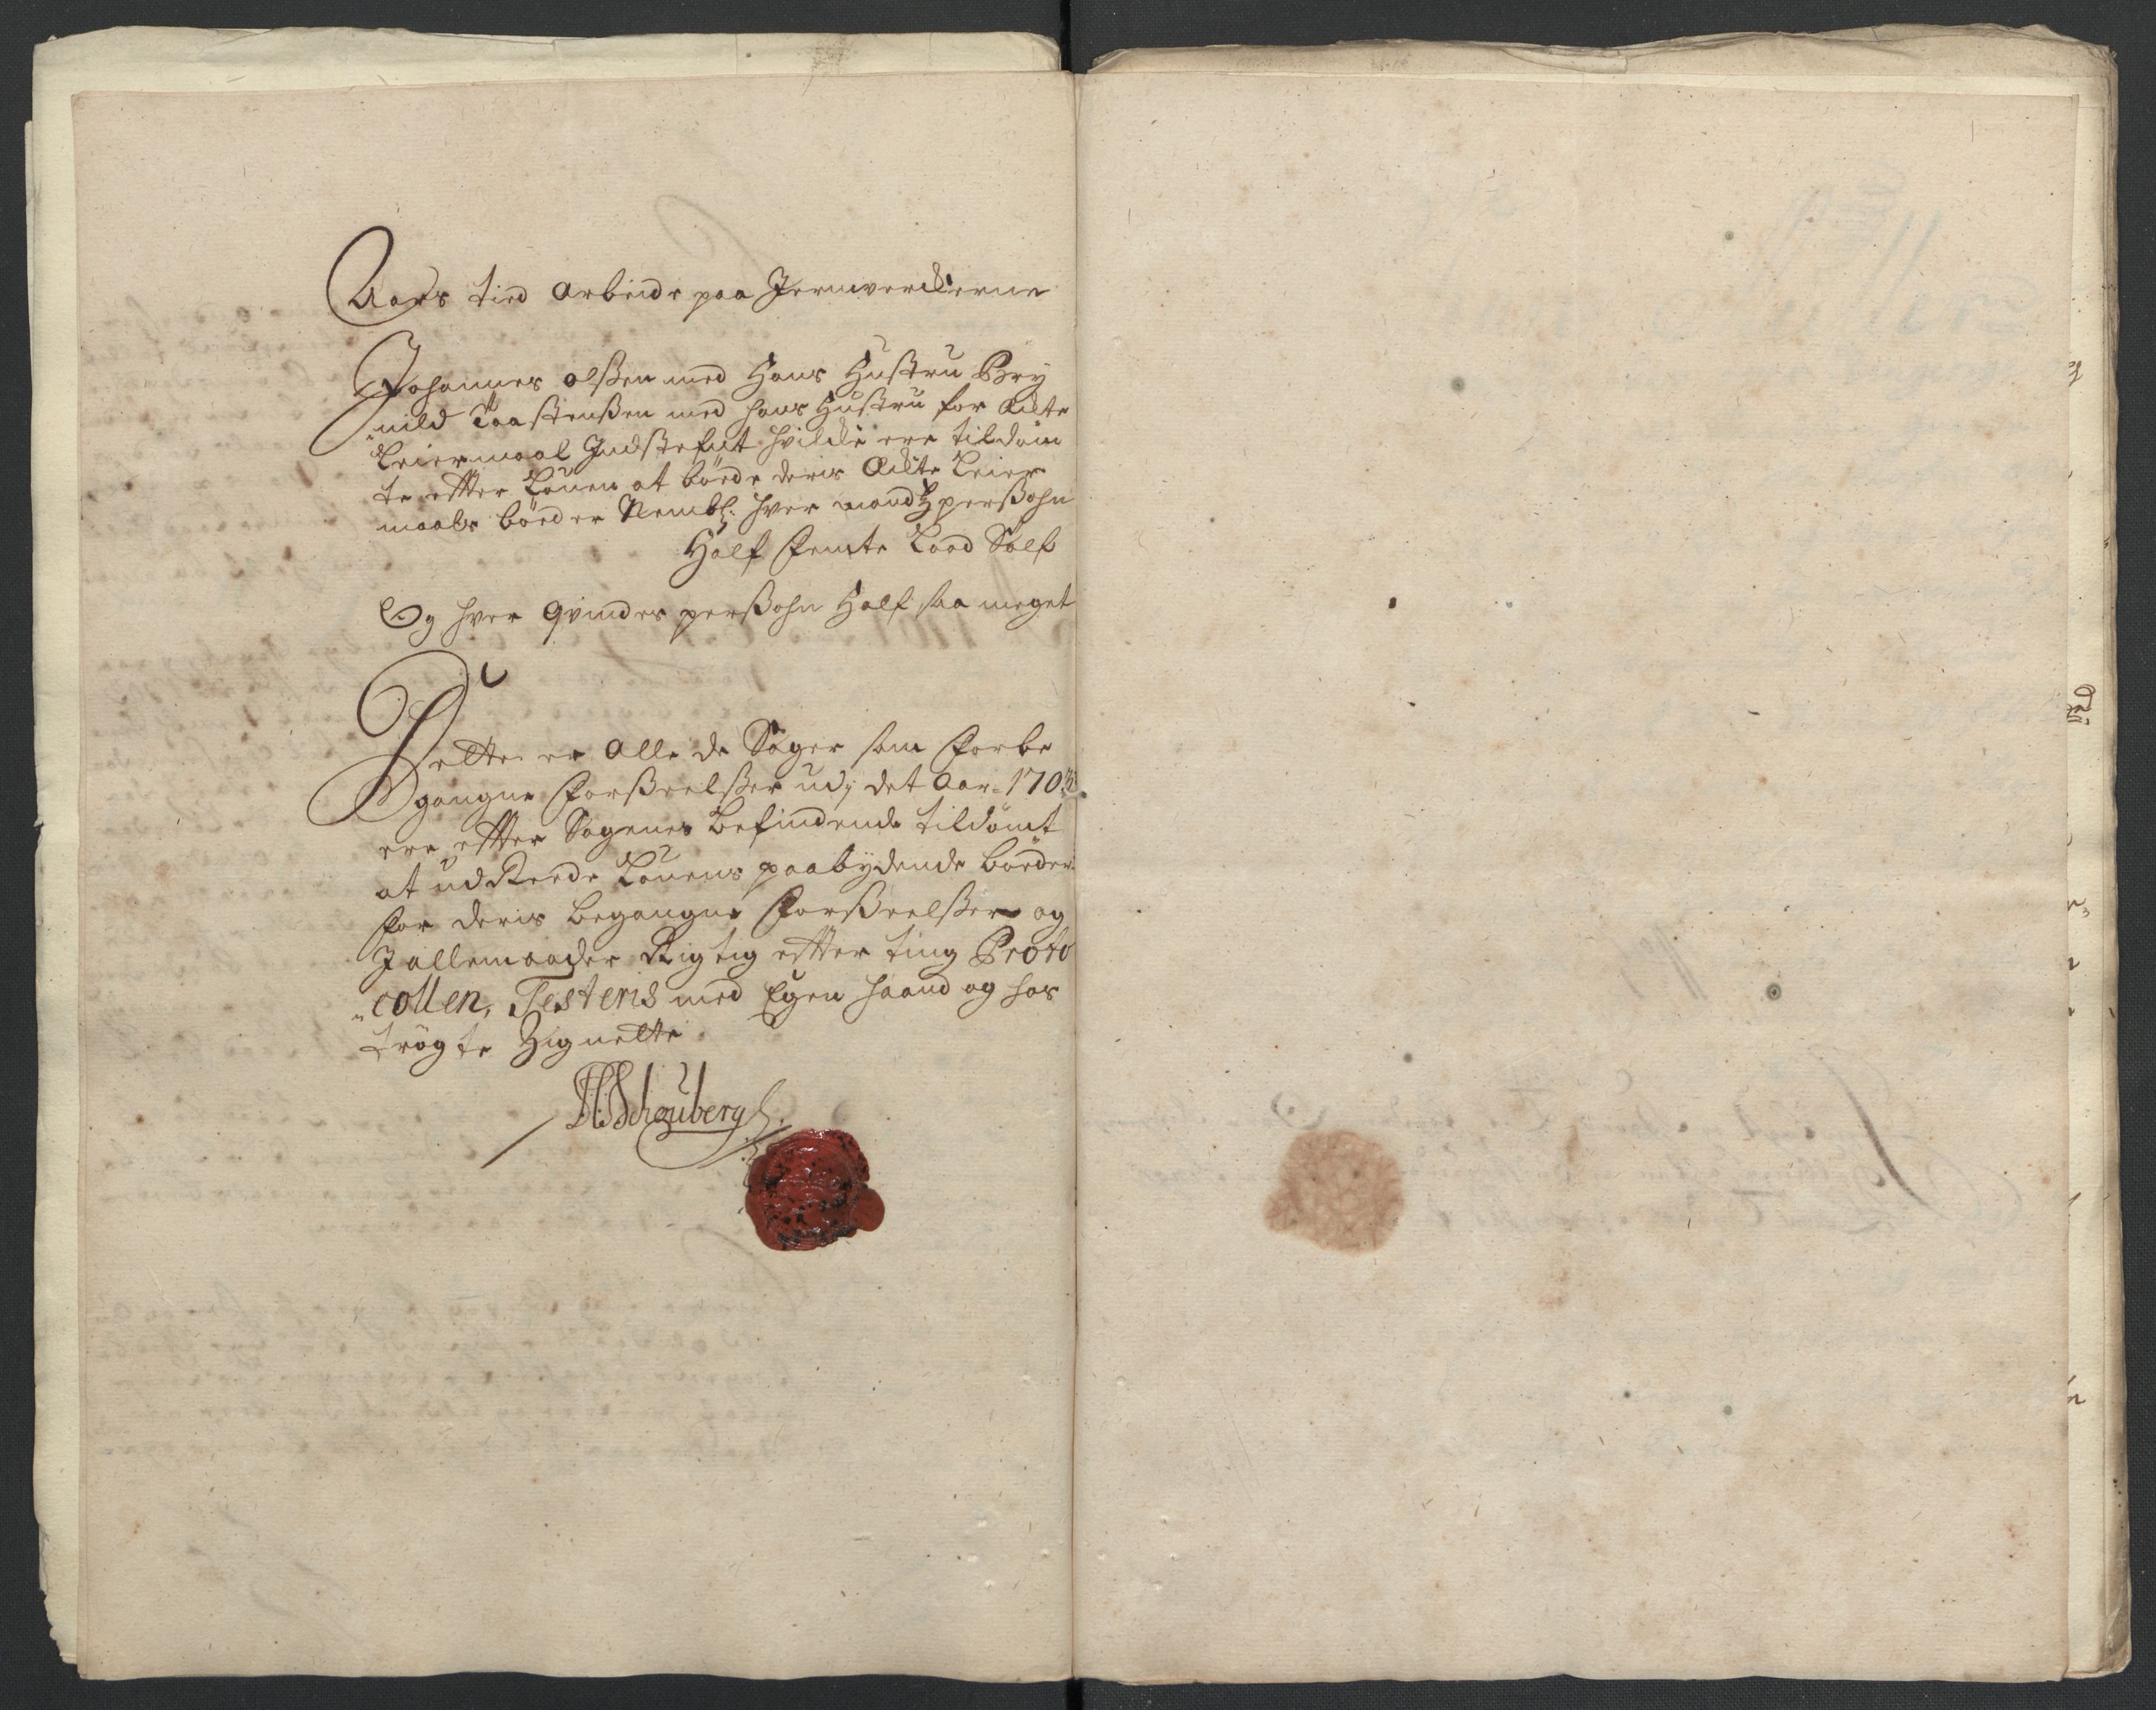 Aars tied Arbeide paa Jernverckerne
Johannes olßen med Hans Hustru Bry
nild Taastenßen med hans Hustru for Ækte
Leiermaal Indstefnt hvilcke ere tildöm
te efter Louen at böede deris Ækte Leier
maals böeder Nembl: hver mands perßohn
Half femte Lood Sölf
Og hver qvindes perßohn Half saa meget
Dette er Alle de Sager som forbe
gangne forßeelßer udj det Aar 1703
ere efter Sagenes befindende tildömt
at udRede Louens paabydende böeder
for deris begangne forßeelßer og
J allemaader Rigtig efter ting Proto
collen, Testeris med Egen haand og hos
trögte Zignette
Schouberg